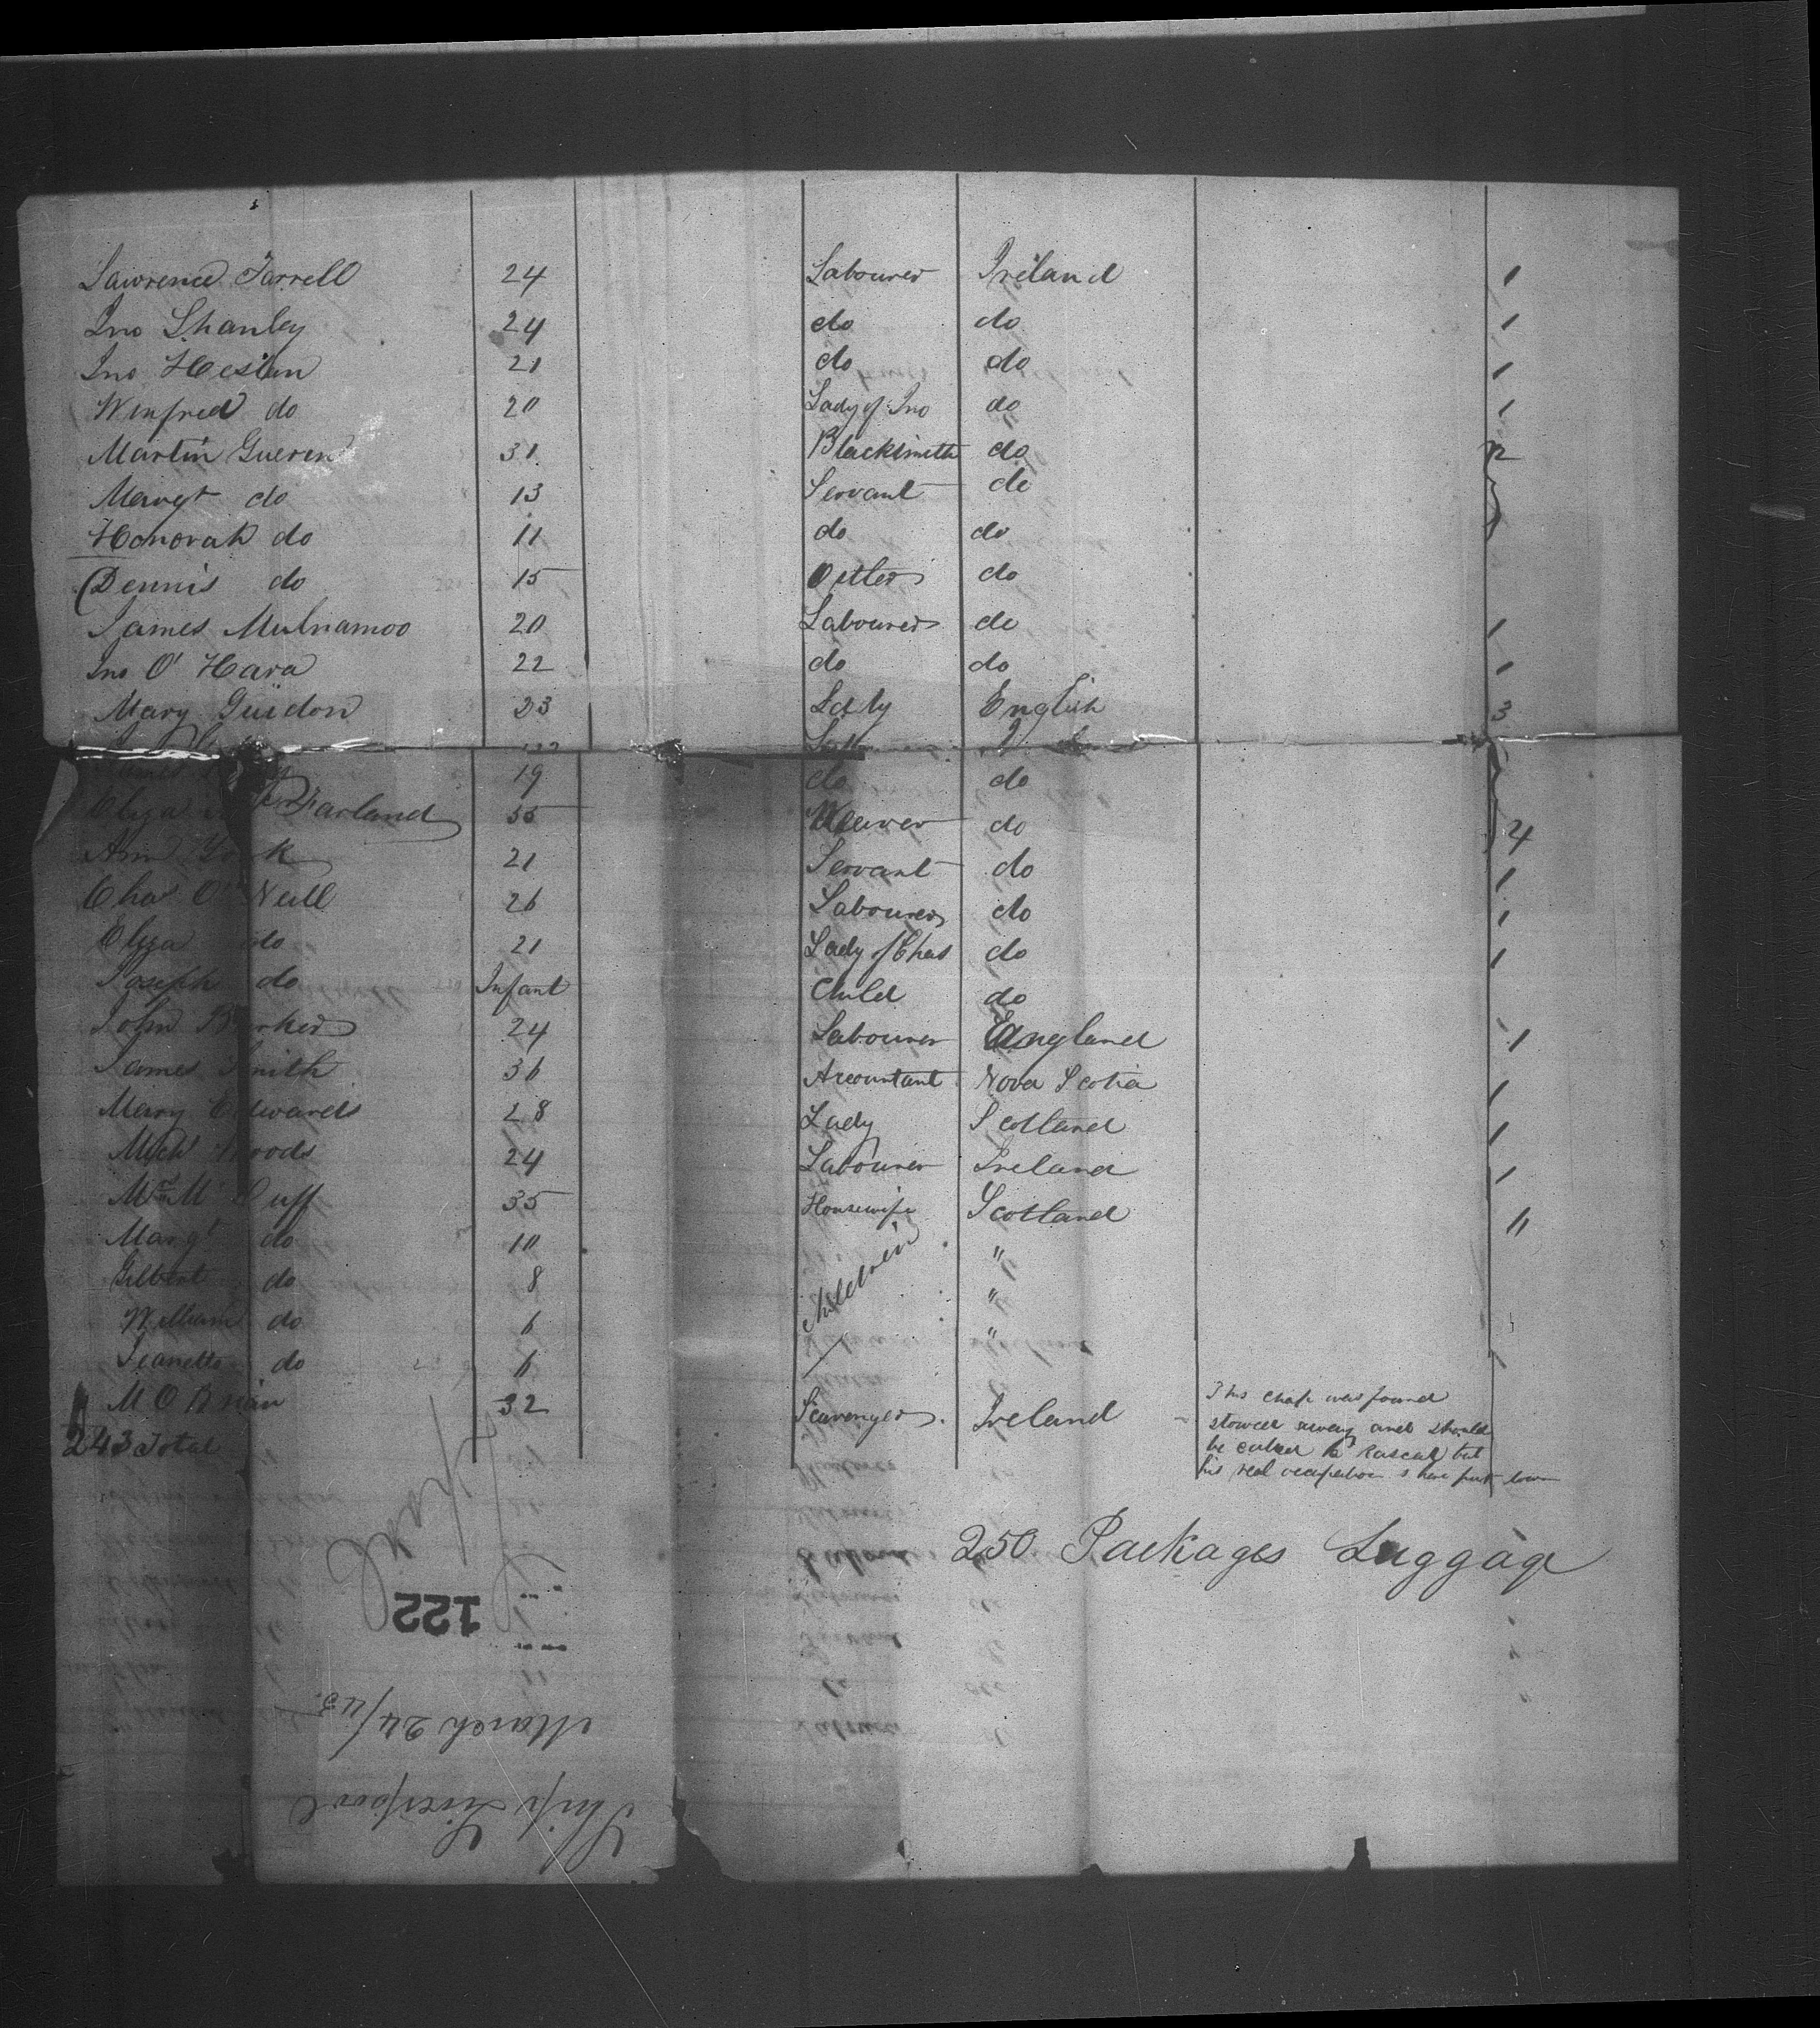 Lawrence Farrell 24 Labourer Ireland 1
Jno Shanley 24 do do 1
Jno Heslan 21 do do 1
Winfred do 20 Lady of Jno do 1
Martin Guerin 31 Blacksmith do 2
Margt do 13 Servant do
Honorah do 11 do do
Dennis do 15 Ostler do
James Mulnamoo 20 Labourer do 1
Jno O'Hara 22 do do 1
Mary Guidon 23 Lady English 3
19 do do
Eliza McFarland 35 Weaver do 4
Ann York 21 Servant do 1
Chas O'Neill 26 Labourer do 1
Eliza do 21 Lady of Chas do 1
Joseph do Infant Child do
John Barker 24 Labourer England 1
James Smith 36 Accountant Nova Scotia 1
Mary Edwards 28 Lady Scotland 1
Mich Woods 24 Labourer Ireland 1
Mrs McDuff 35 Housewife Scotland 11
Margt do 10 Children "
Gilbert do 8 "
William do 6 "
Jeanetta do 6
M O Brian 32 Scavenger Ireland This chap was found
stowed away and should
be called a Rascal but
his real occupation is here put down
243 Total
250 Packages Luggage
122
March 24/45
Ship Liverpool